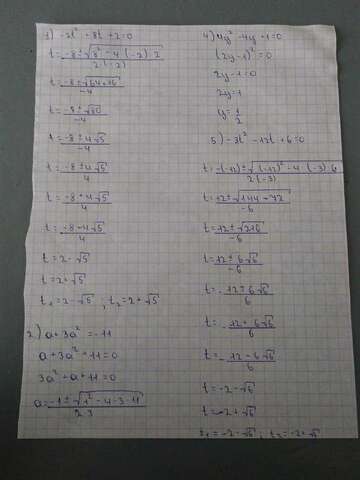 1) -2t² + 8t + 2 = 0
t = (-8 ± √(8² - 4 · (-2) · 2)) / (2 · (-2))
t = (-8 ± √(64 + 16)) / -4
t = (-8 ± √80) / -4
t = (-8 ± 4√5) / -4
t = (-8 ± 4√5) / 4
t = (-8 + 4√5) / 4
t = (-8 - 4√5) / 4
t = 2 - √5
t = 2 + √5
t₁ = 2 - √5 ; t₂ = 2 + √5
2) a + 3a² = -11
a + 3a² + 11 = 0
3a² + a + 11 = 0
a = (-1 ± √(1² - 4 · 3 · 11)) / (2 · 3)
4) 4y² - 4y + 1 = 0
(2y - 1)² = 0
2y - 1 = 0
2y = 1
y = 1/2
5) -3t² - 12t + 6 = 0
t = (-(-12) ± √((-12)² - 4 · (-3) · 6)) / (2 · (-3))
t = (12 ± √(144 + 72)) / -6
t = (12 ± √216) / -6
t = (12 ± 6√6) / -6
t = - (12 ± 6√6) / 6
t = - (12 + 6√6) / 6
t = - (12 - 6√6) / 6
t = -2 - √6
t = -2 + √6
t₁ = -2 - √6 ; t₂ = -2 + √6